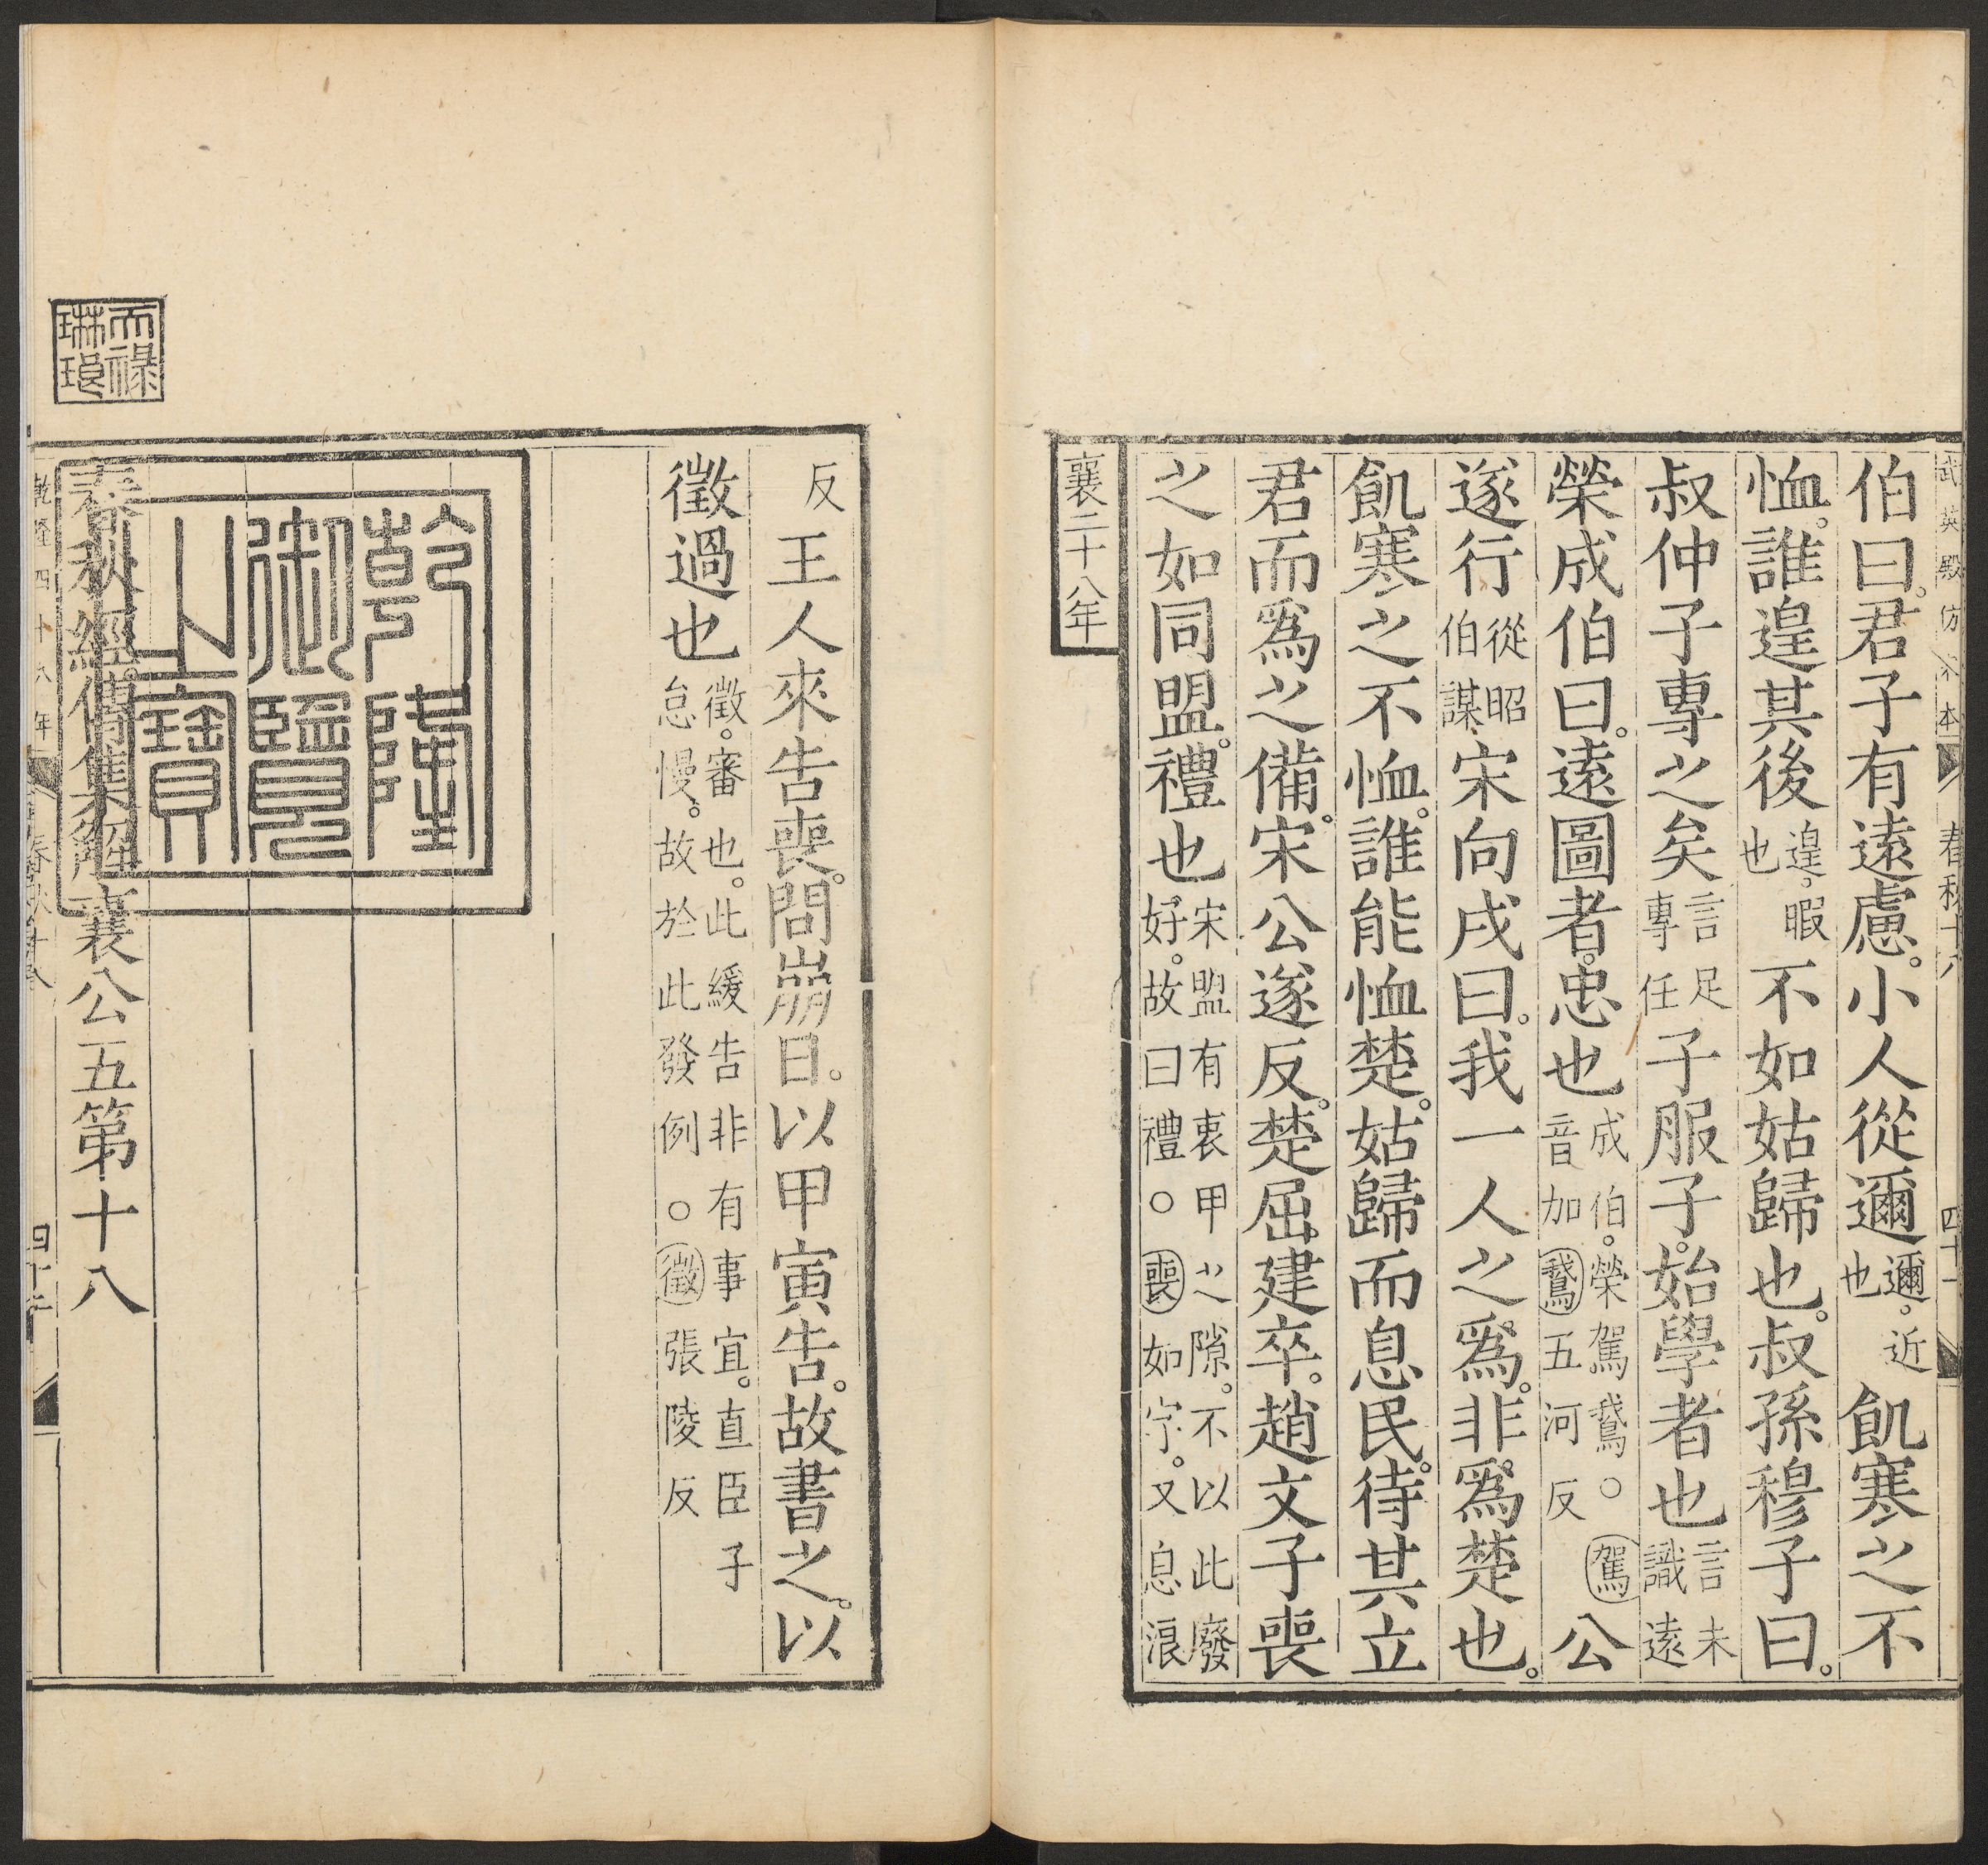 武英殿仿宋本 春秋十八 四十一
伯曰。君子有遠慮。小人從邇邇。近也飢寒之不
恤。誰遑其後遑。暇也不如姑歸也。叔孫穆子曰。
叔仲子專之矣言足專任子服子。始學者也言未識遠
榮成伯曰。遠圖者。忠也成伯。榮駕鵞。○駕音加鵞五河反公
遂行從昭伯謀宋向戌曰。我一人之爲。非爲楚也。
飢寒之不恤。誰能恤楚。姑歸而息民。待其立
君而爲之備。宋公遂反。楚屈建卒。趙文子喪
之如同盟。禮也宋盟有衷甲之隙。不以此廢好。故曰禮。○喪如字。又息浪
襄二十八年
反王人來告喪。問崩日。以甲寅告。故書之。以
徵過也徵。審也。此緩告非有事宜。直臣子怠慢。故於此發例○徵張陵反
乾隆御覽之寶
春秋經傳集解襄公五第十八
天祿琳琅
乾隆四十八年 春秋十八